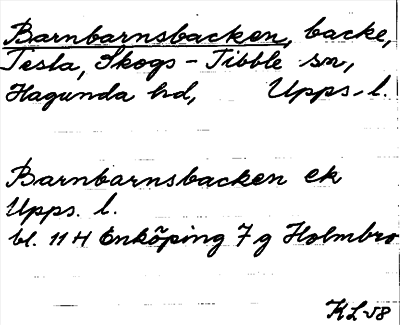 Barnbarnsbacken, backe,
Tesla, Skogs-Tibble sn,
Hagunda hd, Upps. l.
Barnbarnsbacken ek
Upps. l.
bl. 11 H Enköping 7 g Holmbro
KL-58